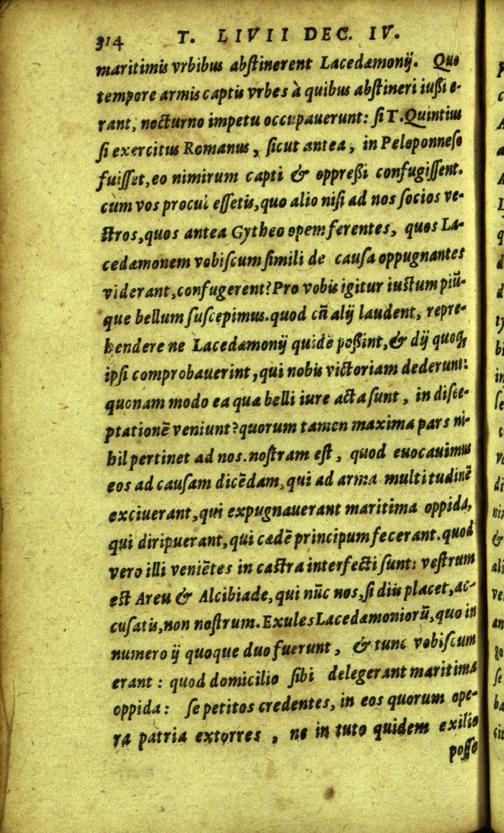 314 T. LIVII DEC. IV.
maritimis vrbibus abſtinerent Lacedæmonij. Quo
tempore armis captis vrbes à quibus abſtineri iußi e-
rant, nocturno impetu occupauerunt: ſi T. Quintius
ſi exercitus Romanus, ſicut antea, in Peloponneſo
fuiſſet, eo nimirum capti & oppreßi confugiſſent.
cùm vos procul eſſetis, quo alio niſi ad nos ſocios ve-
ſtros, quos antea Gytheo opem ferentes, quos La-
cedæmonem vobiſcum ſimili de cauſa oppugnantes
viderant, confugerent? Pro vobis igitur iuſtum piũ-
que bellum ſuſcepimus. quod cũ alij laudent, repre-
hendere ne Lacedæmonij quidē poßint, & dij quoq;
ipſi comprobauerint, qui nobis victoriam dederunt:
quonam modo ea quæ belli iure acta ſunt, in diſce-
ptationē veniunt? quorum tamen maxima pars ni-
hil pertinet ad nos. noſtram eſt, quod euocauimus
eos ad cauſam dicēdam, qui ad arma multitudinē
exciuerant, qui expugnauerant maritima oppida,
qui diripuerant, qui cædē principum fecerant. quod
vero illi veniētes in caſtra interfecti ſunt: veſtrum
eſt Areu & Alcibiade, qui nũc nos, ſi diis placet, ac-
cuſatis, non noſtrum. Exules Lacedæmoniorũ, quo in
numero ij quoque duo fuerunt, & tunc vobiſcum
erant: quod domicilio ſibi delegerant maritima
oppida: ſe petitos credentes, in eos quorum ope-
ra patria extorres, ne in tuto quidem exilio
poſſe